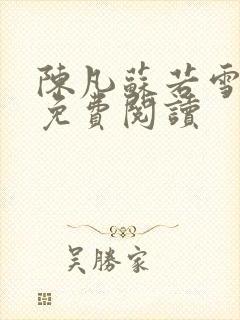 陳凡蘇若雪
免費閱讀
吴勝家